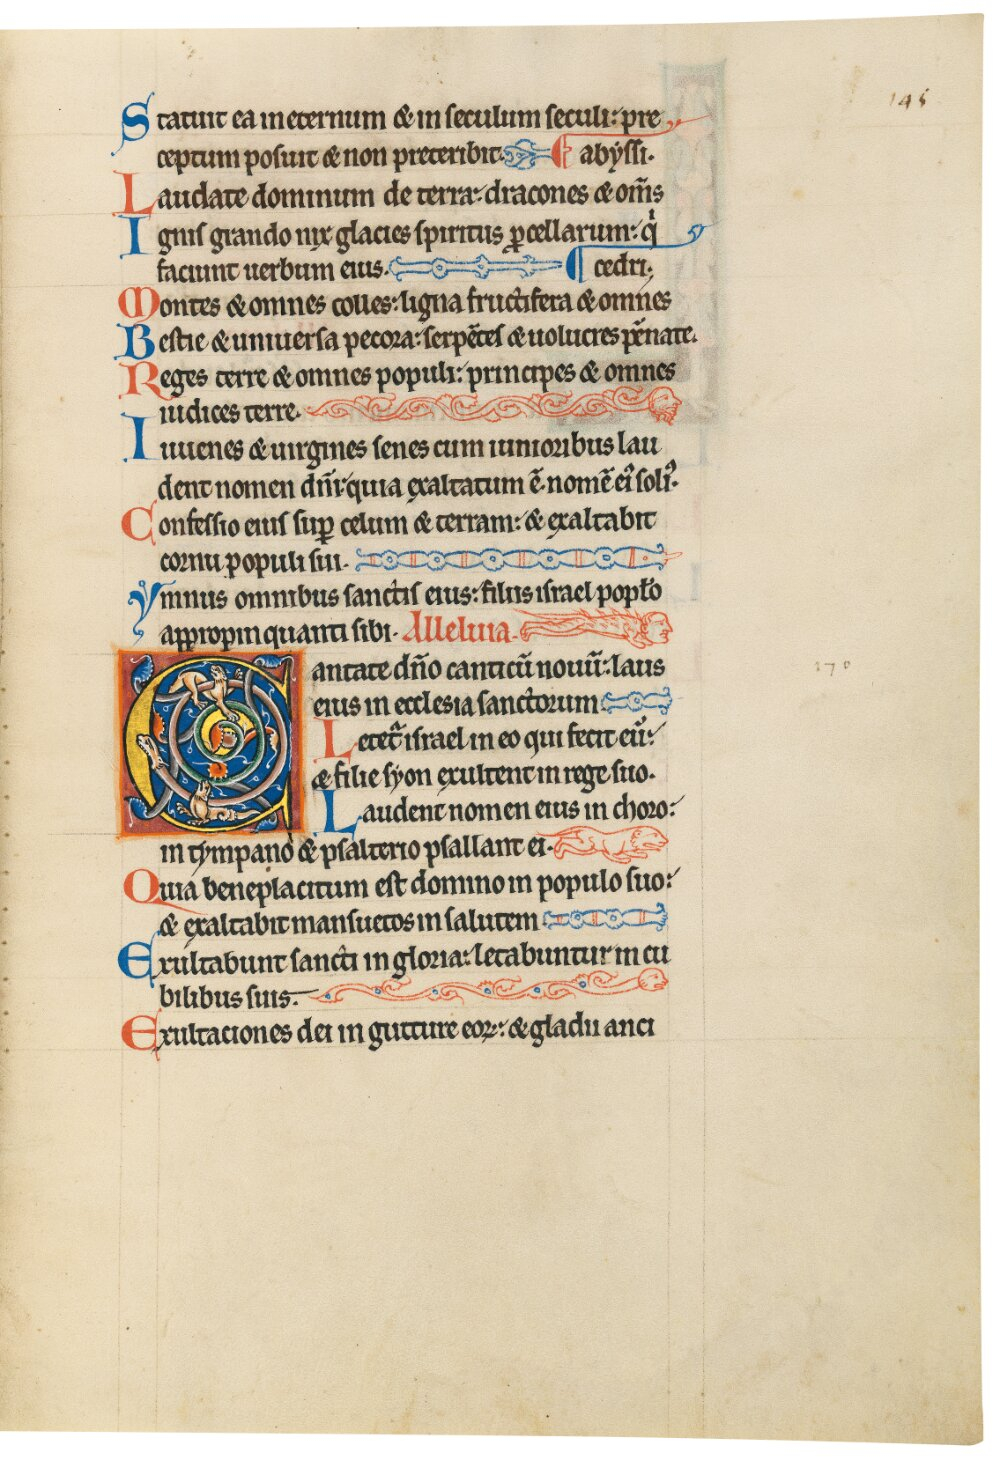 145
Statuit ea in eternum & in seculum seculi: pre
ceptum posuit & non preteribit. abyssi.
Laudate dominum de terra: dracones & om̄s
Ignis grando nix glacies spiritus ꝓcellarum: q̇
faciunt uerbum eius. cedri;
Montes & omnes colles: ligna fructifera & omnes
Bestie & uniuersa pecora: serpētes & uolucres pēnate.
Reges terre & omnes populi: principes & omnes
iudices terre.
Iuuenes & uirgines senes cum iunioribus lau
dent nomen dn̄i: quia exaltatum ē nomē eiꝰ soliꝰ.
Confessio eius suꝑ celum & terram: & exaltabit
cornu populi sui.
Ymnus omnibus sanctis eius: filiis israel popl̄o
appropinquanti sibi. Alleluia.
Cantate dn̄o canticū nouū: laus
eius in ecclesia sanctorum
170
Letet᷑ israel in eo qui fecit eū:
& filie syon exultent in rege suo.
Laudent nomen eius in choro:
in tympano & psalterio psallant ei.
Quia beneplacitum est domino in populo suo:
& exaltabit mansuetos in salutem
Exultabunt sancti in gloria: letabuntur in cu
bilibus suis.
Exultaciones dei in gutture eoꝝ: & gladii anci